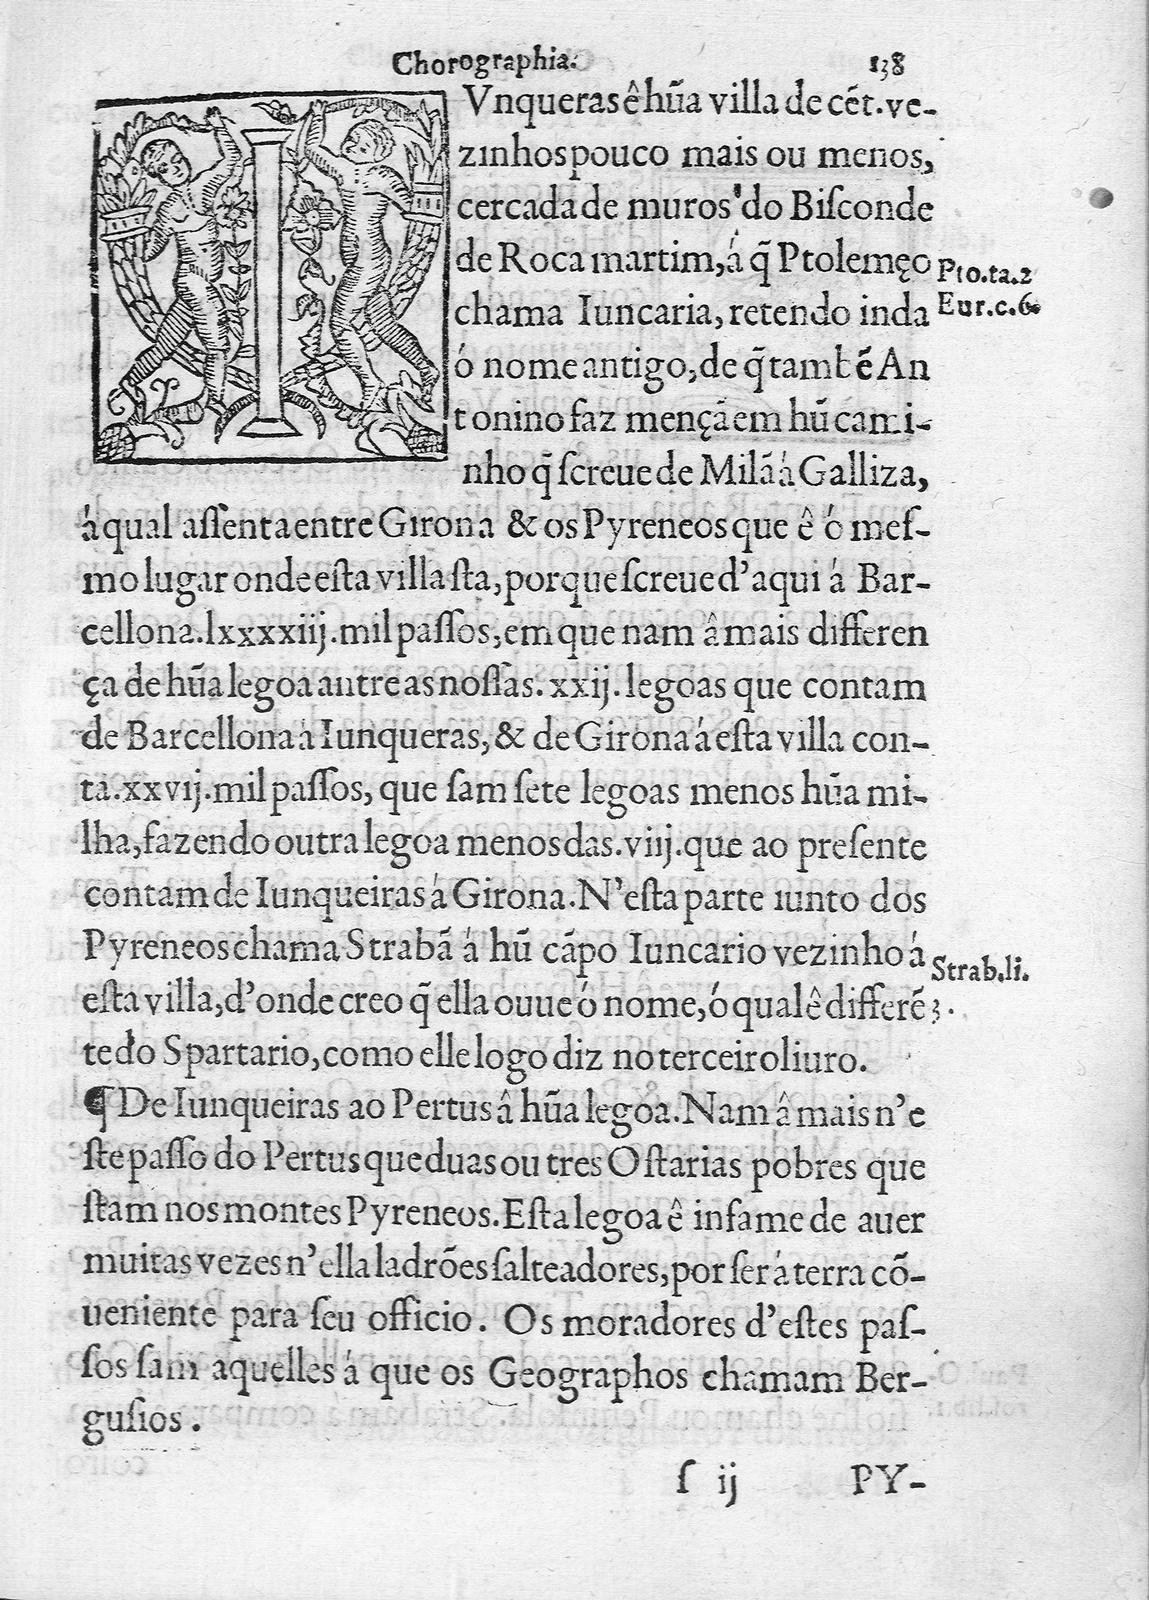 Chorographia. 138
IVnqueras ê hũa villa de cẽt. ve-
zinhos pouco mais ou menos,
cercada de muros do Biſconde
de Roca martim, á q̃ Ptolemęo
Pto.ta.2
chama Iuncaria, retendo inda
Eur.c.6.
ó nome antigo, de q̃ tambẽ An
tonino faz mençã em hũ cami-
nho q̃ ſcreue de Milã á Galliza,
á qual aſſenta entre Girona & os Pyreneos que ê ó meſ-
mo lugar onde eſta villa ſta, porque ſcreue d'aqui á Bar-
cellona.lxxxxiij.mil paſſos, em que nam â mais differen
ça de hũa legoa antre as noſſas.xxij.legoas que contam
de Barcellona á Iunqueras, & de Girona á eſta villa con-
ta.xxvij.mil paſſos, que ſam ſete legoas menos hũa mi-
lha, fazendo outra legoa menos das.viij.que ao preſente
contam de Iunqueiras á Girona. N'eſta parte iunto dos
Pyreneos chama Strabã á hũ cãpo Iuncario vezinho á
Strab.li.
eſta villa, d'onde creo q̃ ella ouue ó nome, ó qual ê differẽ
3.
te do Spartario, como elle logo diz no terceiro liuro.
¶ De Iunqueiras ao Pertus â hũa legoa. Nam â mais n'e
ſte paſſo do Pertus que duas ou tres Oſtarias pobres que
ſtam nos montes Pyreneos. Eſta legoa ê infame de auer
muitas vezes n'ella ladrões ſalteadores, por ſer á terra cõ-
ueniente para ſeu officio. Os moradores d'eſtes paſ-
ſos ſam aquelles á que os Geographos chamam Ber-
guſios.
ſ ij PY-